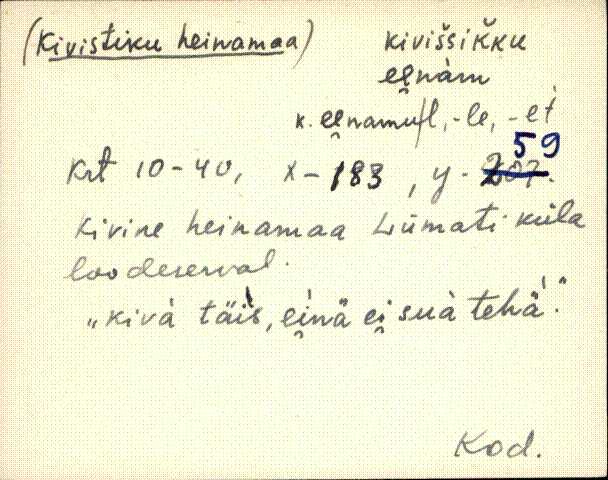 (Kivistiku heinamaa)
kivišsikku
eenàm
k. eenamu/l, -le, -et
59
Krt 10-40, x - 183, y - 207.
Kivine heinamaa Liimati küla
loodeserval.
"kivà täis, einä ei suà tehä."
Kod.